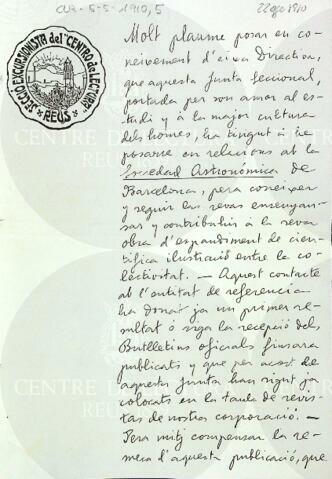 CLR-5-5-1910,5
22 ago 1910
SECCIÓ EXCURSIONISTA del "CENTRO de LECTURA" REUS
Molt plaume posar en co-
neixement d'eixa Directiva,
que aquesta Junta Seccional,
portada per son amor al es-
tudi y á la major cultura
dels homes, ha tingut á be
posarse en relacions ab la
Sociedad Astronómica de
Barcelona, pera coneixer
y seguir las sevas ensenyan-
sas y contribuhir á la seva
obra d'espandiment de cien-
tifica ilustració entre la co-
lectivitat. — Aquest contacte
ab l'entitat de referencia
ha donat ja un primer re-
sultat ó siga la recepció dels
Butlletins oficials fins ara
publicats y que per acort de
aquesta Junta han sigut ja
colocats en la taula de revis-
tas de nostra corporació. —
Pera mitj compensar la re-
mesa d'aquesta publicació, que
CENTRE DE LECTURA
REUS